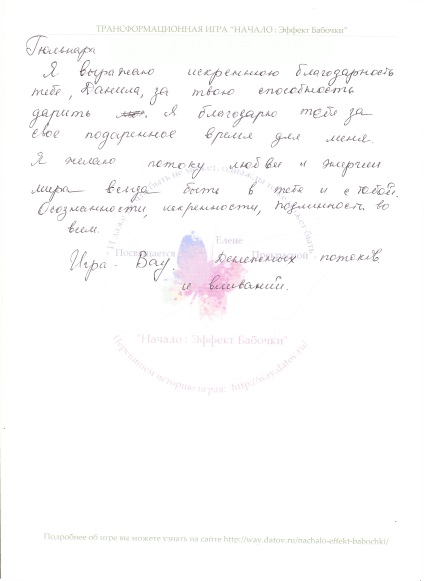 ТРАНСФОРМАЦИОННАЯ ИГРА "НАЧАЛО : Эффект Бабочки"
Гюльнара
Я выражаю искреннюю благодарность
тебе, Данила, за твою способность
дарить. Я благодарю тебя за
свое подаренное время для меня.
Я желаю потоку любви и энергии
мира всегда быть в тебе и с тобой.
Осознанности, искренности, подлинность во
всем.
Игра - Вау. Денежных потоков
и вливаний.
Посвящается Елене
"Начало : Эффект Бабочки"
http://way.datov.ru/
Подробнее об игре вы можете узнать на сайте http://way.datov.ru/nachalo-effekt-babochki/